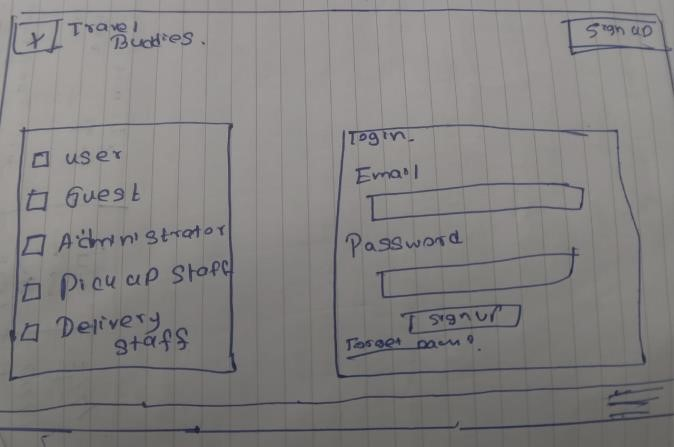 x
Travel
Buddies.
Sign up
user
Guest
Administrator
Pick up Staff
Delivery
staff
Login.
Email
Password
Sign up
Forget